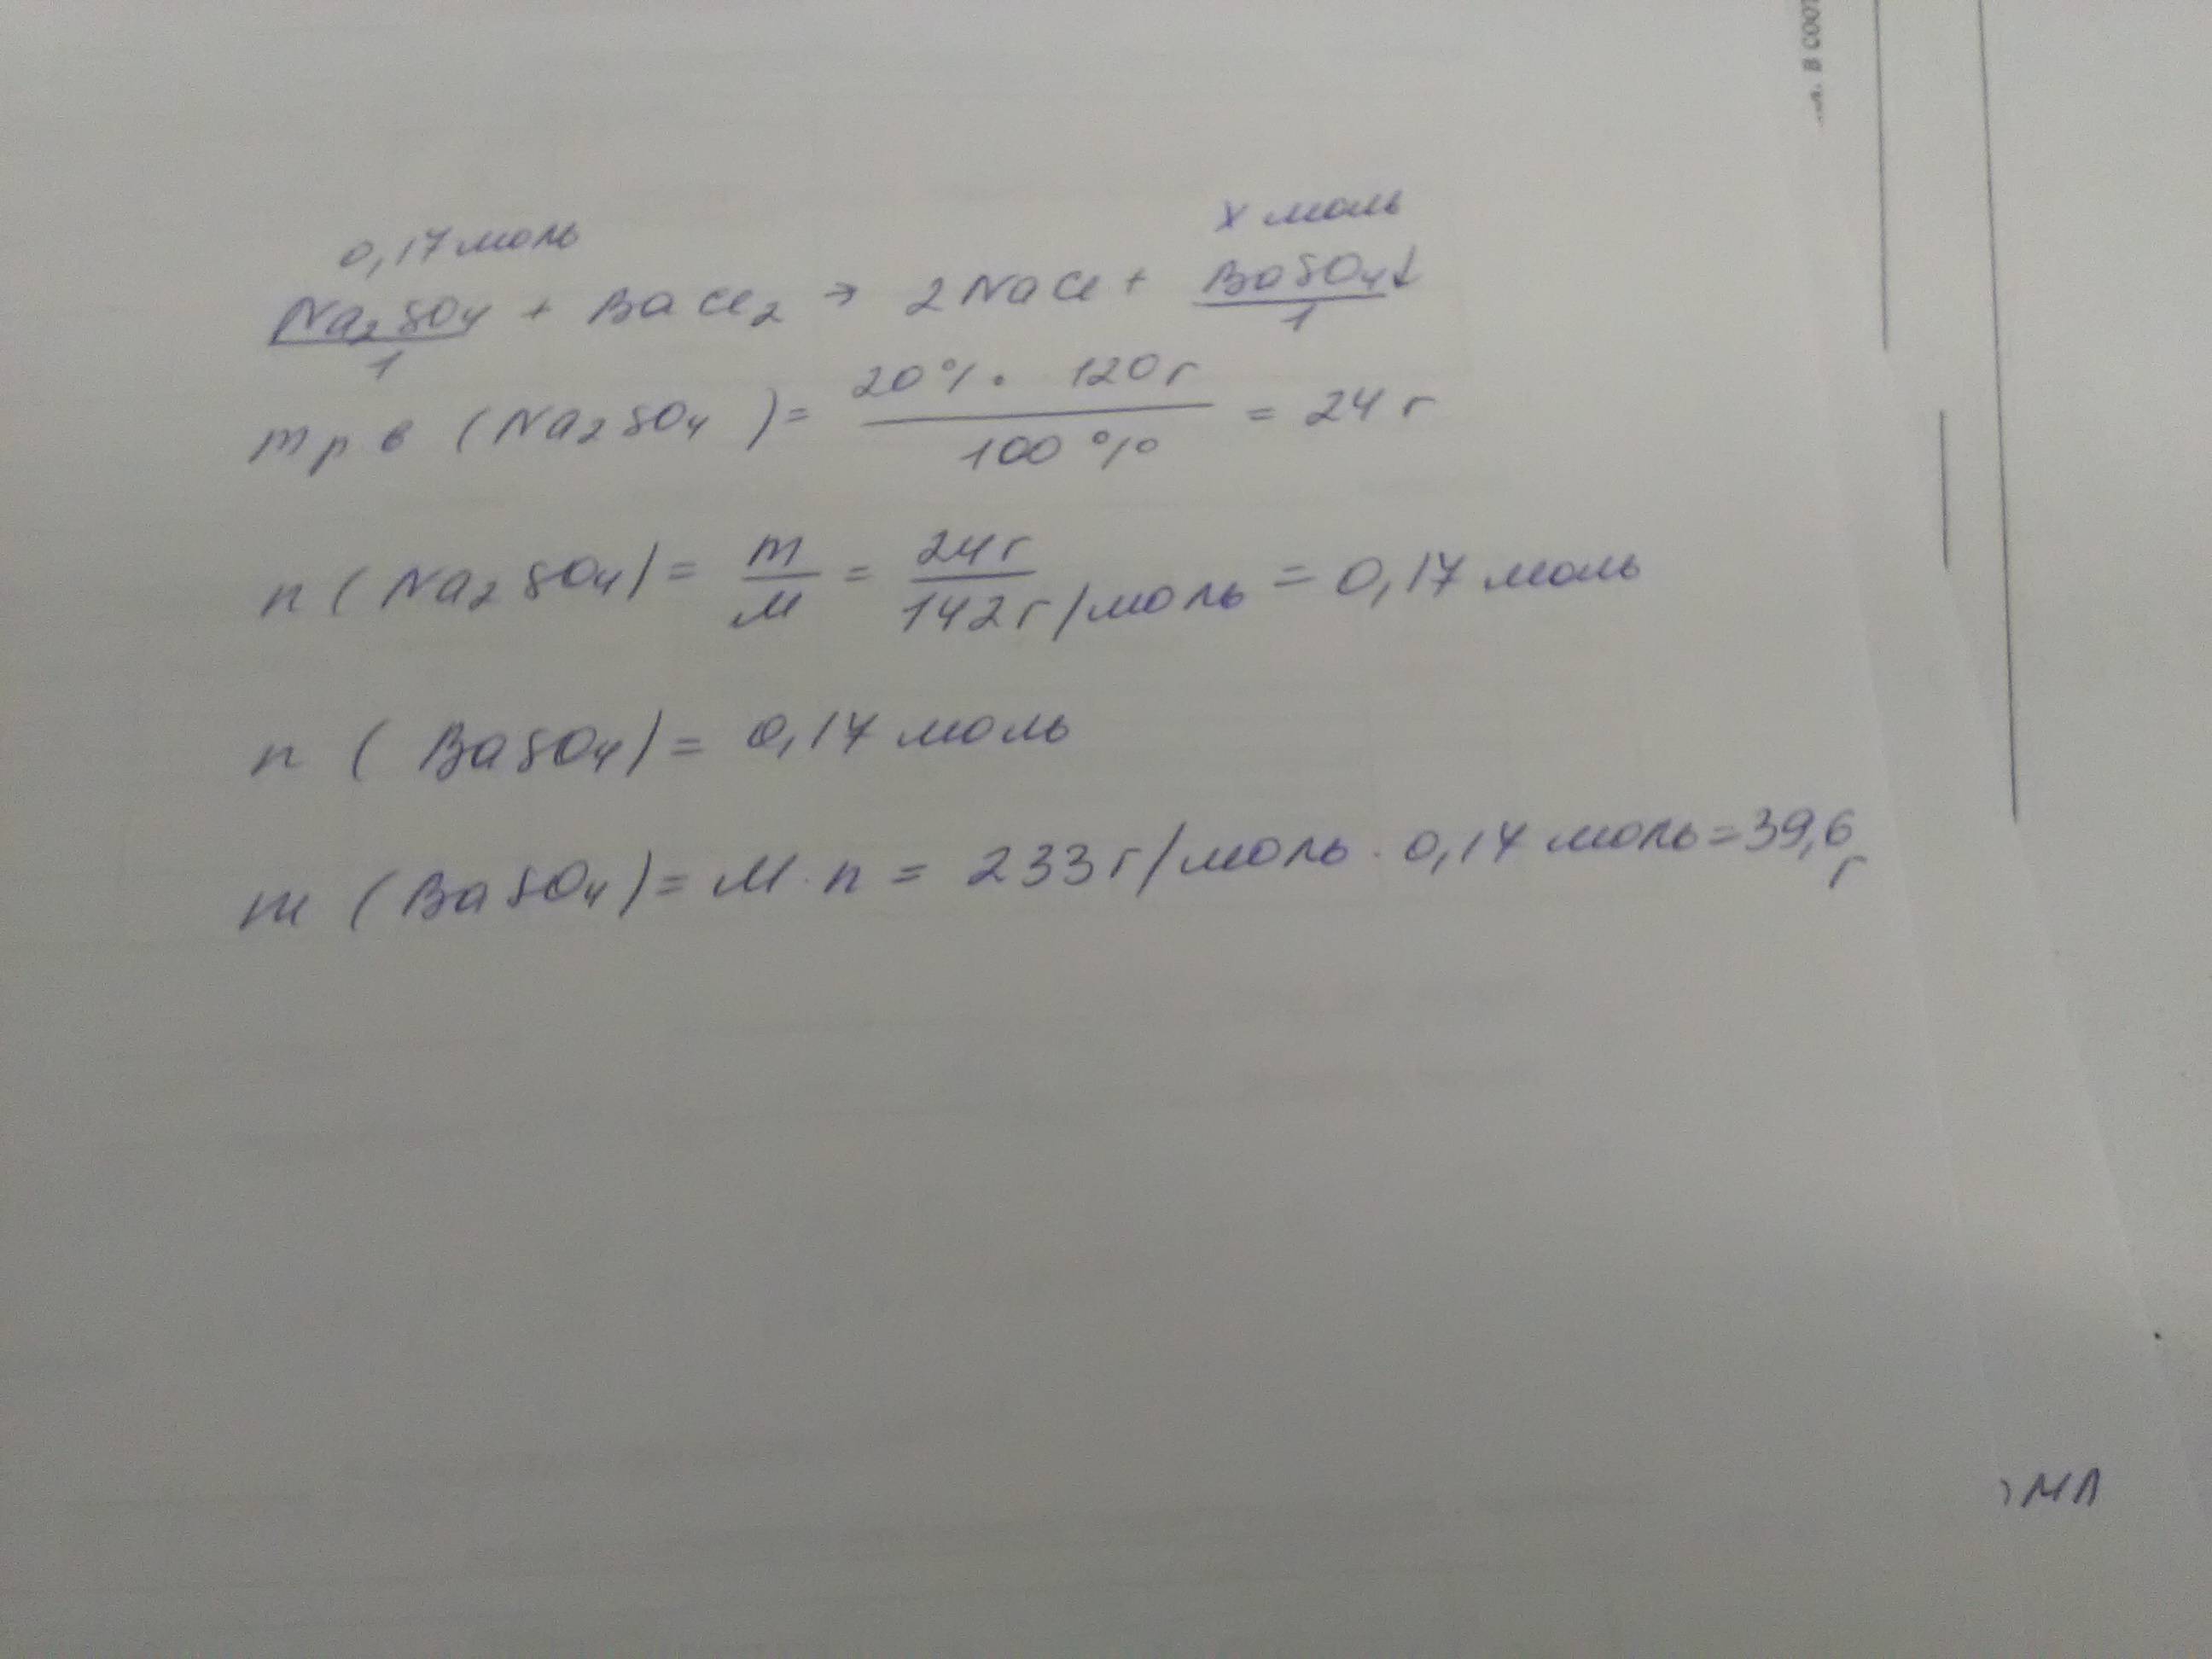 0,17 моль x моль
Na₂SO₄ + BaCl₂ → 2NaCl + BaSO₄↓
1 1
m р.в (Na₂SO₄) = 20% · 120г / 100% = 24 г
n (Na₂SO₄) = m / M = 24г / 142г/моль = 0,17 моль
n (BaSO₄) = 0,17 моль
m (BaSO₄) = M · n = 233г/моль · 0,17 моль = 39,6 г
. В СООТ
МЛ